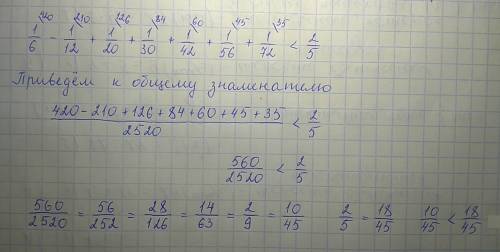 420 210 126 84 60 45 35
1/6 - 1/12 + 1/20 + 1/30 + 1/42 + 1/56 + 1/72 < 2/5
Приведём к общему знаменателю
(420 - 210 + 126 + 84 + 60 + 45 + 35)/2520 < 2/5
560/2520 < 2/5
560/2520 = 56/252 = 28/126 = 14/63 = 2/9 = 10/45 2/5 = 18/45 10/45 < 18/45